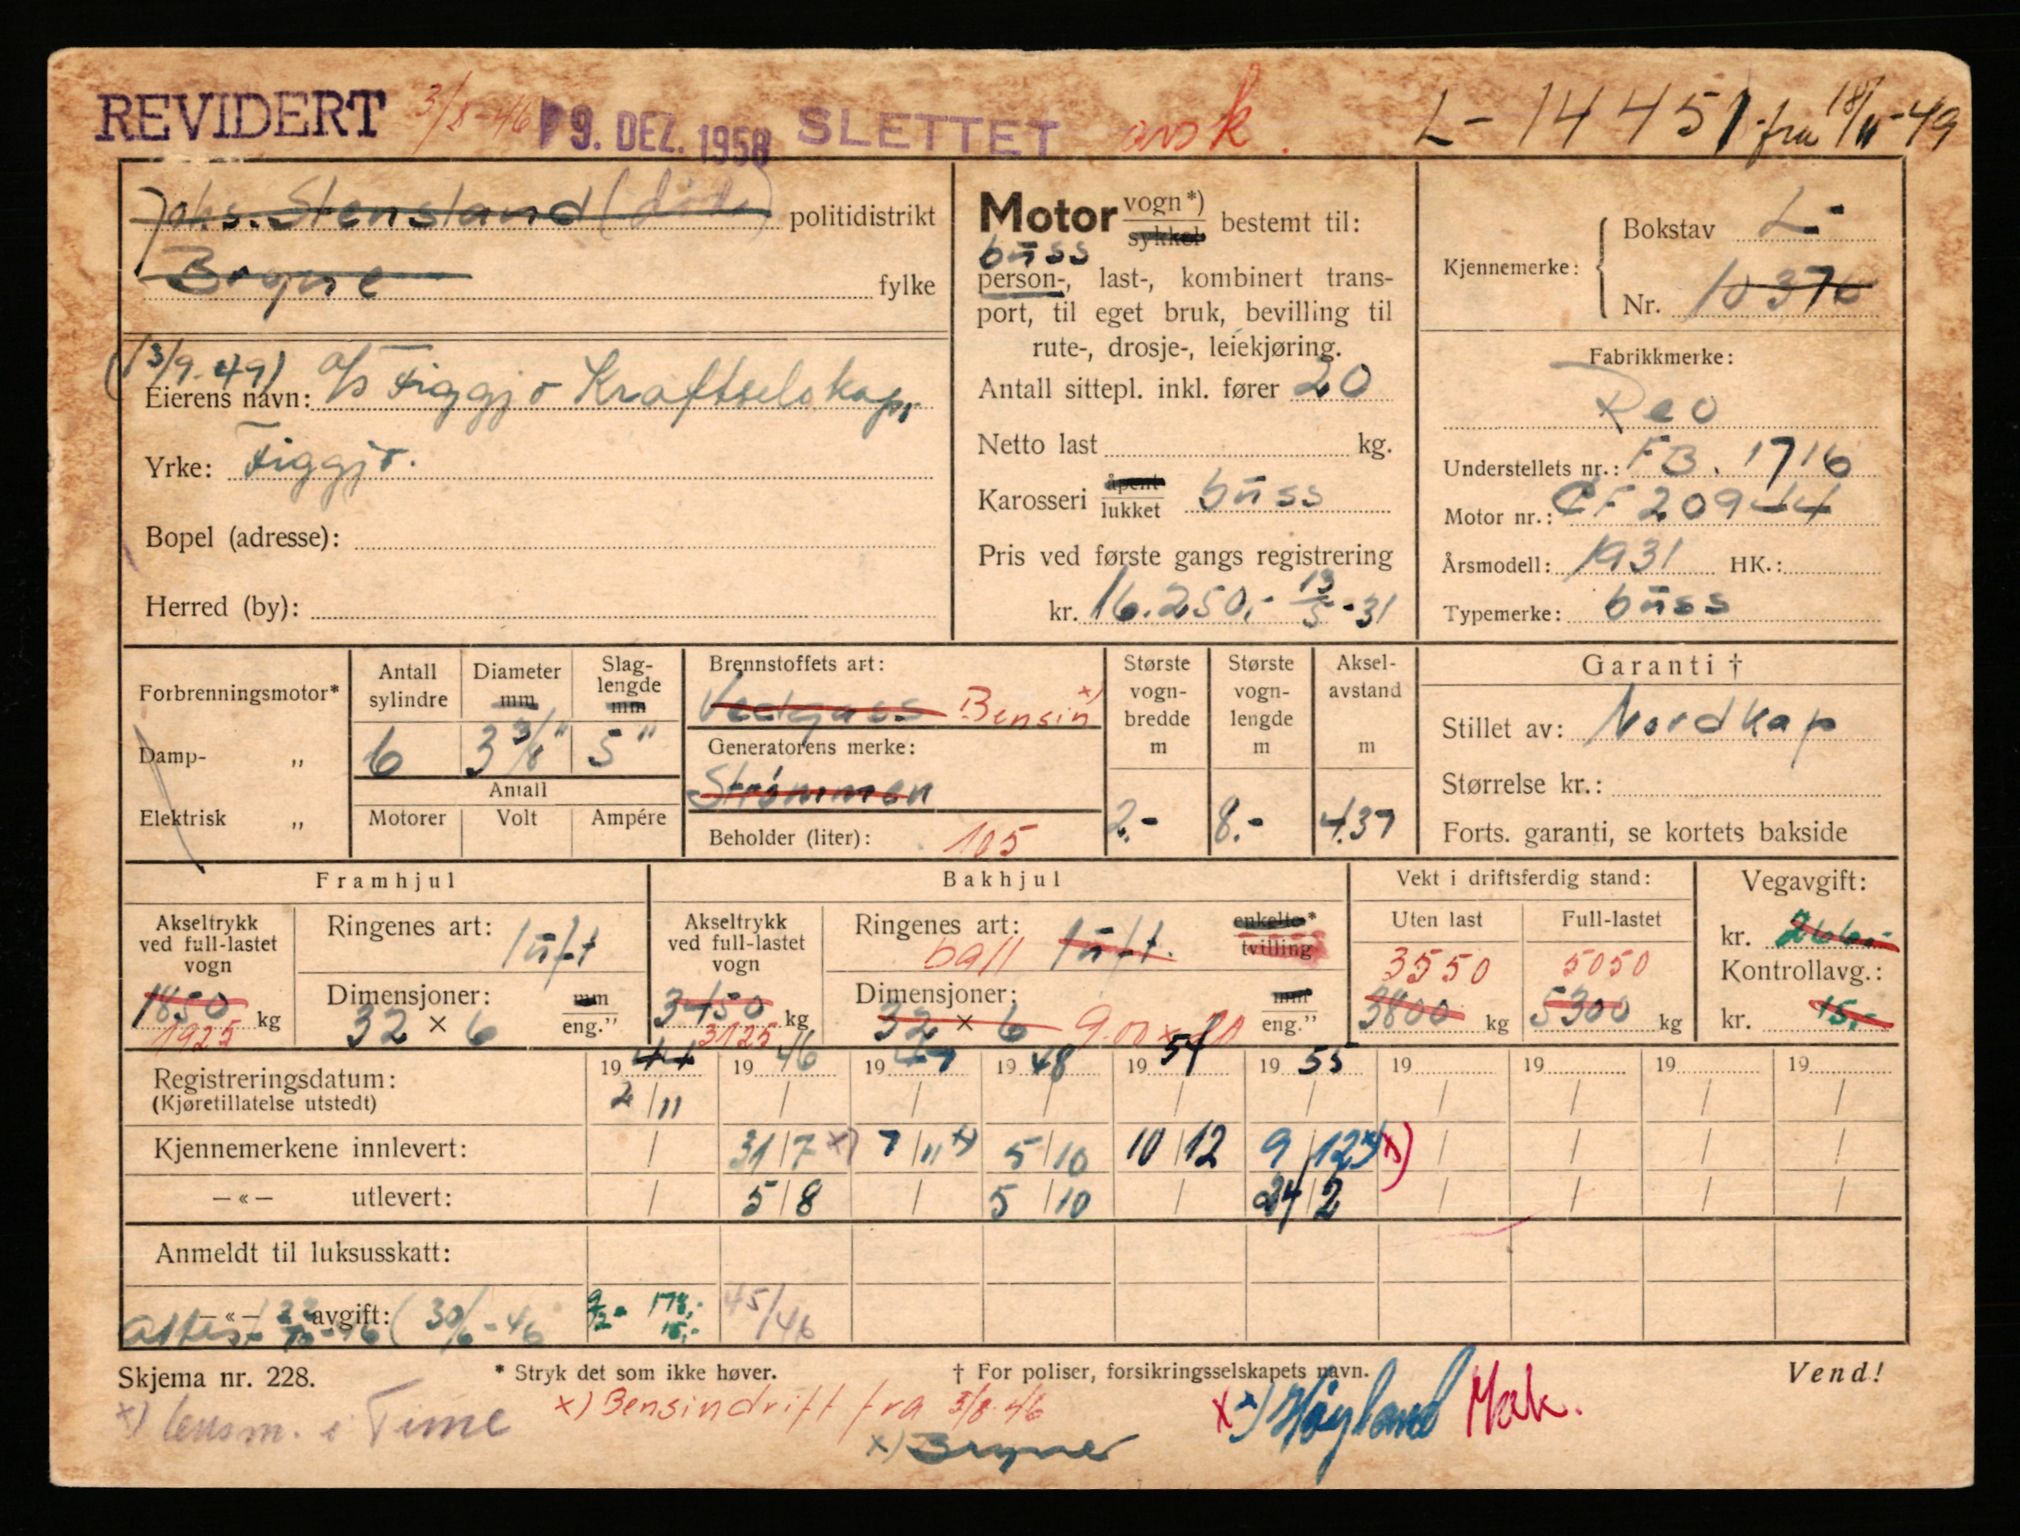 REVIDERT 3/8-46 9. DEZ. 1958 SLETTET avsk. L-14451 fra 18/11-49
Johs. Stensland (død) politidistrikt
Bryne fylke
(13/9-49)
Eierens navn: A/S Figgjo Kraftselskap,
Yrke: Figgjo.
Bopel (adresse):
Herred (by):
Motor vogn*) sykkel bestemt til:
büss
person-, last-, kombinert trans-
port, til eget bruk, bevilling til
rute-, drosje-, leiekjøring.
Antall sittepl. inkl. fører 20
Netto last kg.
Karosseri åpent lukket büss
Pris ved første gangs registrering
kr. 16.250,- 13/5-31
Kjennemerke: Bokstav L-
Nr. 10376
Fabrikkmerke:
Reo
Understellets nr.: FB. 1716
Motor nr.: CF 20944
Årsmodell: 1931 HK.:
Typemerke: büss
Forbrenningsmotor*
Damp- „
Elektrisk „
Antall sylindre
6
Diameter mm
3 3/8"
Slag-
lengde
mm
5"
Antall
Motorer Volt Ampére
Brennstoffets art:
Vedgass Bensin x)
Generatorens merke:
Strømmen
Beholder (liter): 105
Største
vogn-
bredde
m
2.-
Største
vogn-
lengde
m
8.-
Aksel-
avstand
m
4.37
Garanti †
Stillet av: Nordkap
Størrelse kr.:
Forts. garanti, se kortets bakside
Framhjul
Akseltrykk
ved full-lastet
vogn
1850
1925 kg
Ringenes art:
lüft
Dimensjoner: mm
32 × 6 eng.”
Bakhjul
Akseltrykk
ved full-lastet
vogn
3450
3125 kg
Ringenes art: enkelte*
ball lüft. tvilling
Dimensjoner: mm
32 × 6 9.00 x 20 eng.”
Vekt i driftsferdig stand:
Uten last Full-lastet
3550 5050
3800 kg 5300 kg
Vegavgift:
kr. 266.-
Kontrollavg.:
kr. 15,-
19 44 19 46 19 47 19 48 19 54 19 55 19 19 19 19
Registreringsdatum: 2/11 / / / / / / / / /
(Kjøretillatelse utstedt)
Kjennemerkene innlevert: / 31/7 x) 7/11 x) 5/10 10/12 9/12 x) x) / / / /
—«— utlevert: / 5/8 / 5/10 / 24/2 / / / /
Anmeldt til luksusskatt:
—«— avgift: (30/6-46 9/2- 178,- 45/46
Attest 22/10-46 15,-
Skjema nr. 228. * Stryk det som ikke høver. † For poliser, forsikringsselskapets navn. Vend!
x) lensm. i Time x) Bensindrift fra 3/8-46 x x) Høyland Mak.
x) Bryne